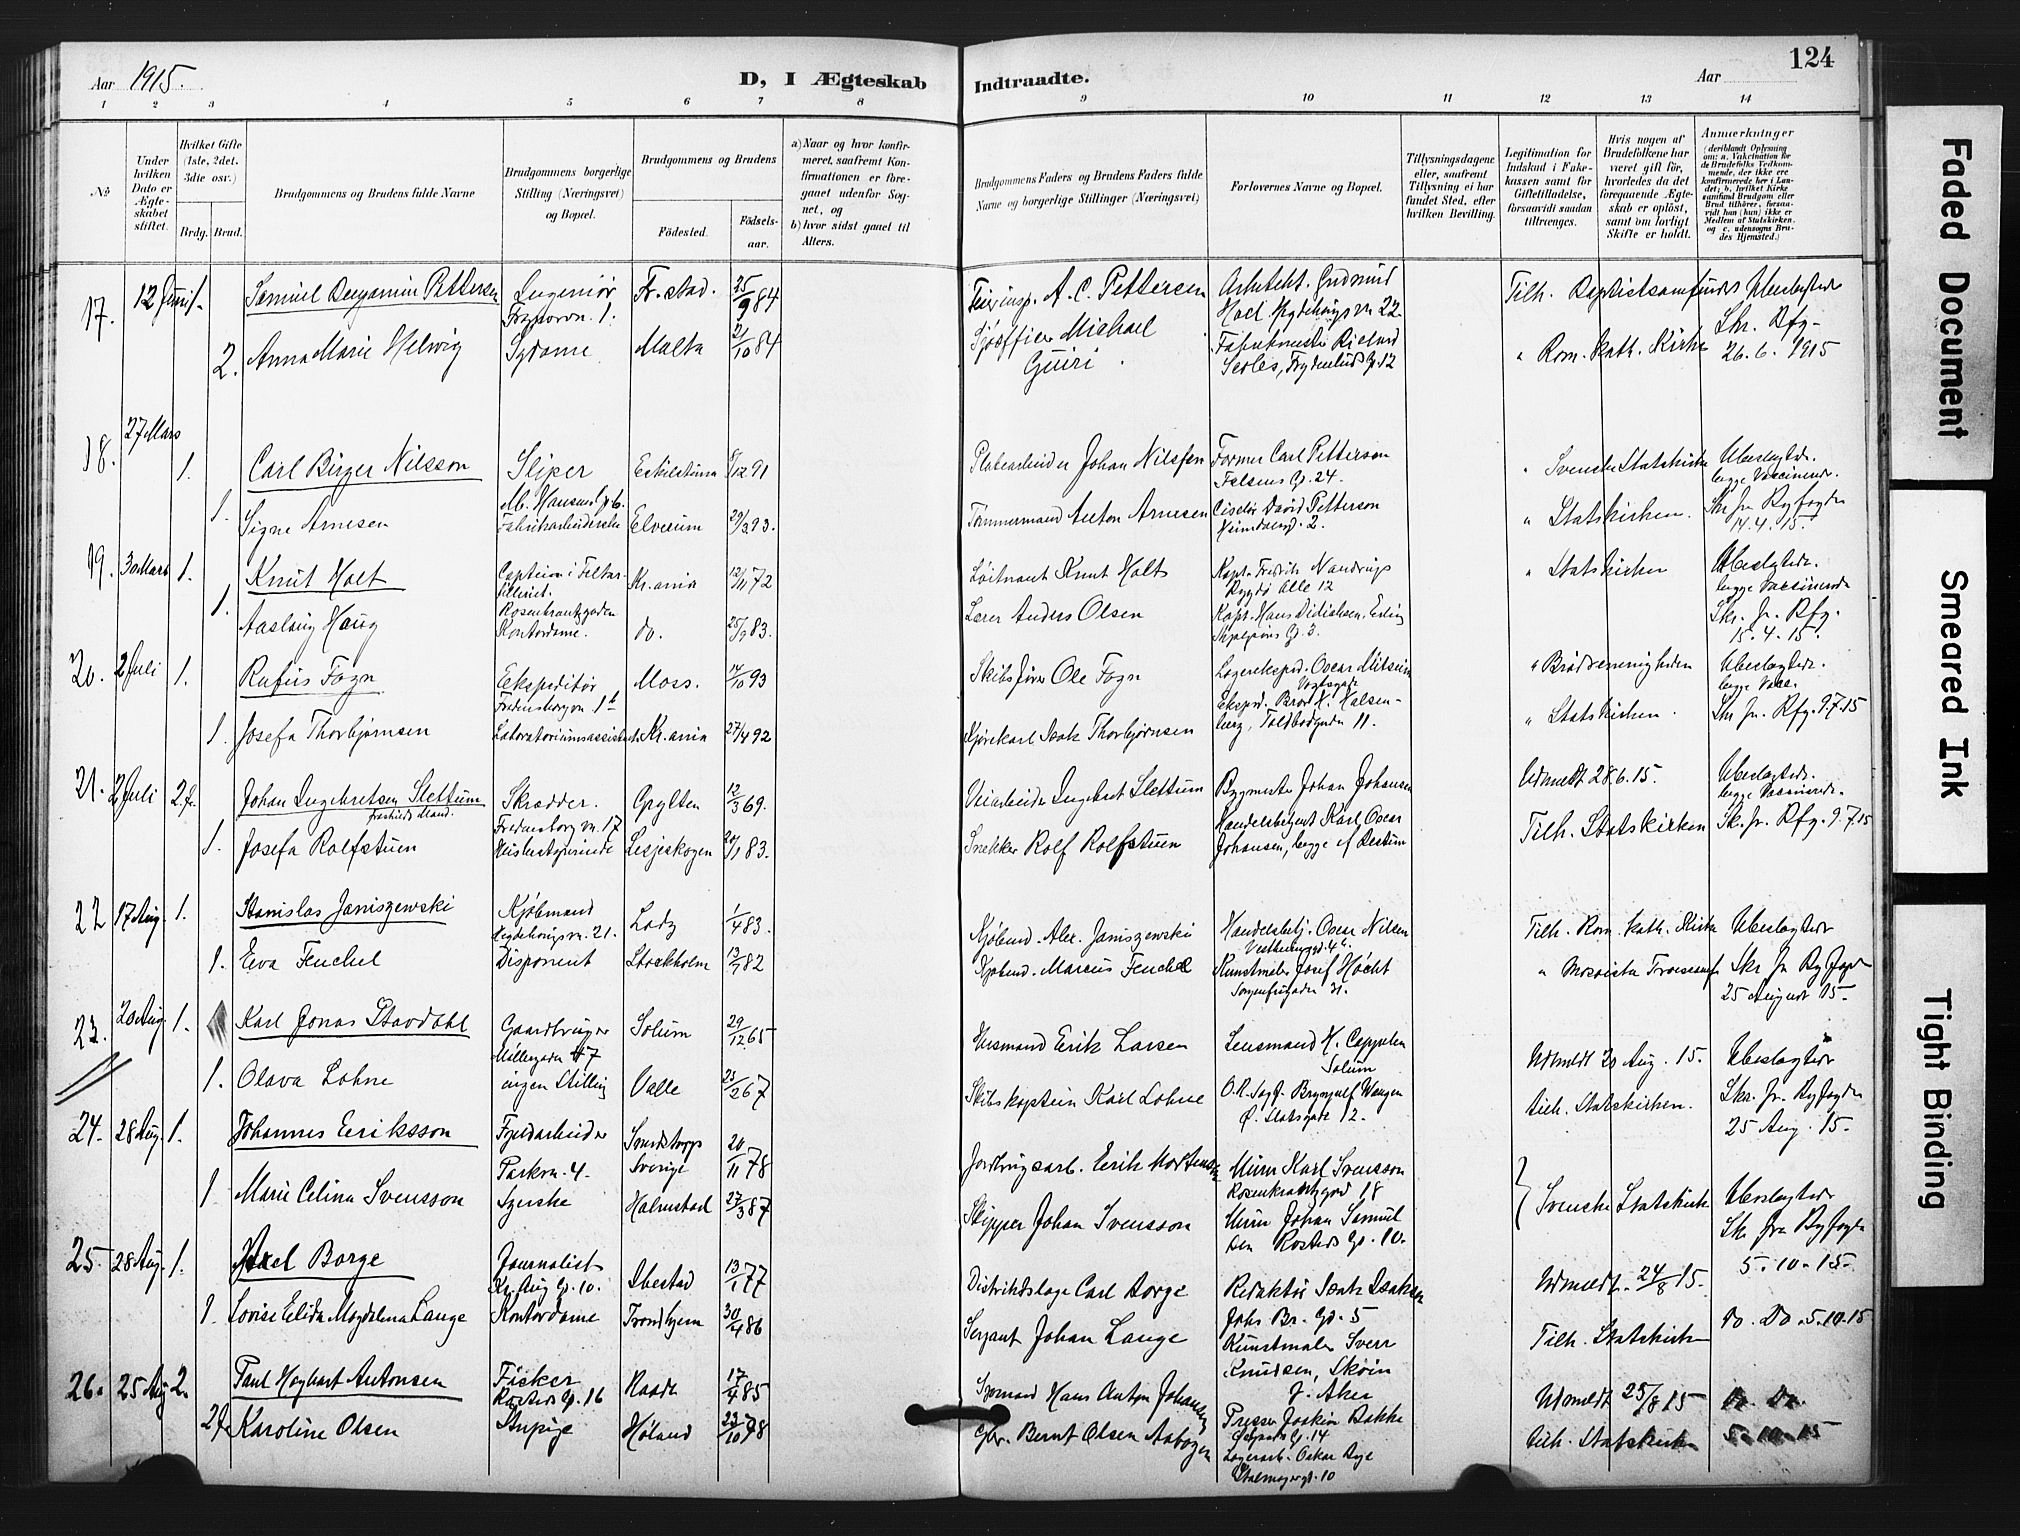 124
Aar 1915.
D, I Ægteskab
Indtraadte.
Aar
1 2 3 4 5 6 7 8 9 10 11 12 13 14
No
Under hvilken Dato er Ægteskabet stiftet.
Hvilket Gifte (1ste, 2det, 3die osv.)
Brdg. Brud.
Brudgommens og Brudens fulde Navne
Brudgommens borgerlige Stilling (Næringsvei) og Bopæl.
Brudgommens og Brudens
Fødested.
Fødselsaar.
a) Naar og hvor konfirmeret, saafremt Konfirmationen er foregaaet udenfor Sognet, og
b) hvor sidst gaaet til Alters.
Brudgommens Faders og Brudens Faders fulde Navne og borgerlige Stillinger (Næringsvei)
Forlovernes Navne og Bopæl.
Tillysningsdagene eller, saafremt Tillysning ei har fundet Sted, efter hvilken Bevilling.
Legitimation for Indskud i Enkekassen samt for Giftetilladelse, forsaavidt saadan tiltrænges.
Hvis nogen af Brudefolkene har været gift før, hvorledes da det foregaaende Ægteskab er opløst, samt om lovligt Skifte er holdt.
Anmærkninger
(deriblandt Oplysning om: a. Vakcination for de Brudefolks Vedkommende, der ikke ere konfirmerede her i Landet; b. hvilket Kirkesamfund Brudgom eller Brud tilhører, forsaavidt han (hun) ikke er Medlem af Statskirken, og c. udensogns Brudes Hjemsted.)
17. 12 Juni 1. Samuel Benjamin Pettersen Ingeniør Fr.stad. 25/9 84 A. C. Pettersen Arkitekt. Gudmund Tilh. Baptistsamfundet Ubeslægtede
2. Anna Marie Helwig Sydame Malta 21/10 84 Sjøofficer Michael Guiri " Rom. kath. Kirke 26.6.1915
18. 27 Mars 1. Carl Birger Nilsson Sliper Eskilstuna 12 91 Johan Nilsson Former Carl Petterson " Svenske Statskirke Ubeslægtede.
Falsens G. 24. begge Vaccinerede.
1. Signe Arnesen Fabrikarbeiderske Elverum 29/3 93. Tømmermand Anton Arnesen Ciselør David Petterson " Statskirken. Skr fr Byfogden
14.4.15.
19. 30 Mars 1. Knut Holt Kaptein i Feltar- Kr.ania 12/11 72 Løitnant Knut Holt Kapt. Fredrik " Statskirken Ubeslægtede.
Bygdø Alle 12 begge Vaccinerede
1. Aaslaug Haug Rosenkrantzgaden Kontordame. do. 25/9 83. Lærer Anders Olsen Kapt. Hans Skr. fr. Bfg.
15.4.15.
20. 2 Juli 1. Rufus Fogn Ekspeditør Moss. 14/10 93 Skibsfører Ole Fogn Lagerekspd. Oscar " Brødremenigheden Ubeslægtede.
Fredensborgvn. begge Vacc.
1. Josefa Thorbjørnsen Laboratoriumsassistent Kr.ania 27/4 92 Kjørekarl Isak Thorbjørnsen Toldbodgaden 11. " Statskirken. Skr fr. Bfg. 9.7.15
21. 2 Juli 2. Johan Ingebretsen Slettum Skrædder. Grytten 12/3 69. Veiarbeider Ingebret Slettum Bygmester Johan Johansen Udmeldt 28.6.15. Ubeslægtede.
fraskilt Mand. Fredensborgvn. 17 begge Vaccinerede.
1. Josefa Rolfstuen Lesjeskogen 20/1 83. Snekker Rolf Rolfstuen Handelsagent Karl Oscar Johansen, Tilh. Statskirken Sk. fr. Bfg. 9.7.15
22 17 Aug. 1. Stanislas Janiszewski Kjøbmand Lodz 1/4 83. Kjøbmd. Alex. Janiszewski Handelsbetj. Oscar Nilsen Tilh. Rom. kath. Kirke Ubeslægtede
Hegdehaugsvn. 21.
1. Eva Feuchel Disponent Stockholm 13/7 82 Kjøbmd. Marcus Feuchel Kunstmaler Josef Høcht " Mosaiske Troessamf Skr fr Byfogden
Sorgenfrigaden 31. 25 August 15.
23. 20 Aug. 1. Karl Jonas Stavdahl Gaardbruger Solum 29/12 65 Husmand Erik Larsen Lensmand H. Cappelen Udmeldt 20 Aug. 15. Ubeslægtede
Møllergaden 47 Solum
1. Olava Lohne ingen Stilling Valle 23/2 67 Skibskaptein Karl Lohne O.R. Sagf. Brynjulf Wangen tilh. Statskirken. Skr. fr. Byfogden
Ø. Slotsgate 12. 25 Aug. 15.
24. 28 Aug. 1. Johannes Eriksson Fjeldarbeider Sverige 20/11 78 Jordbrugsarb. Erik Mortensson Murer Karl Svensson Svenske Statskirke Ubeslægtede
Parkvn. 4. Rosenkrantzgad 18
1 Marie Celina Svensson Syerske Halmstad 27/3 87 Skipper Johan Svensson Murer Johan Samuel Sk. fra Byfogden
5.10.15.
25. 28 Aug. 1. Axel Borge Journalist Ibestad 13/1 77 Distriktslæge Carl Borge Redaktør Isak Isaksen Udmeldt. 24/8 15.
Kr. Aug. G. 10. Johs Br. G. 5
1. Lovise Elida Magdalena Lange Kontordame Trondhjem 30/4 86 Sergant Johan Lange Kunstmaler Sverr Knudsen, Skøien Tilh. Statskirken Do. Do. 5.10.15
V. Aker
26. 25 Aug 2. Paul Hagbart Antonsen Fisker Raade 17/4 85 Hans Anton Johansen Presser Joakim Bakke Udmeldt 25/8 15 Do. Do.
2. Karoline Olsen Strupige Høland 23/10 98 Bernt Olsen Aabogen Lagerarb. Oskar tilh. Statskirken 5.10.15
Faded Document
Smeared Ink
Tight Binding